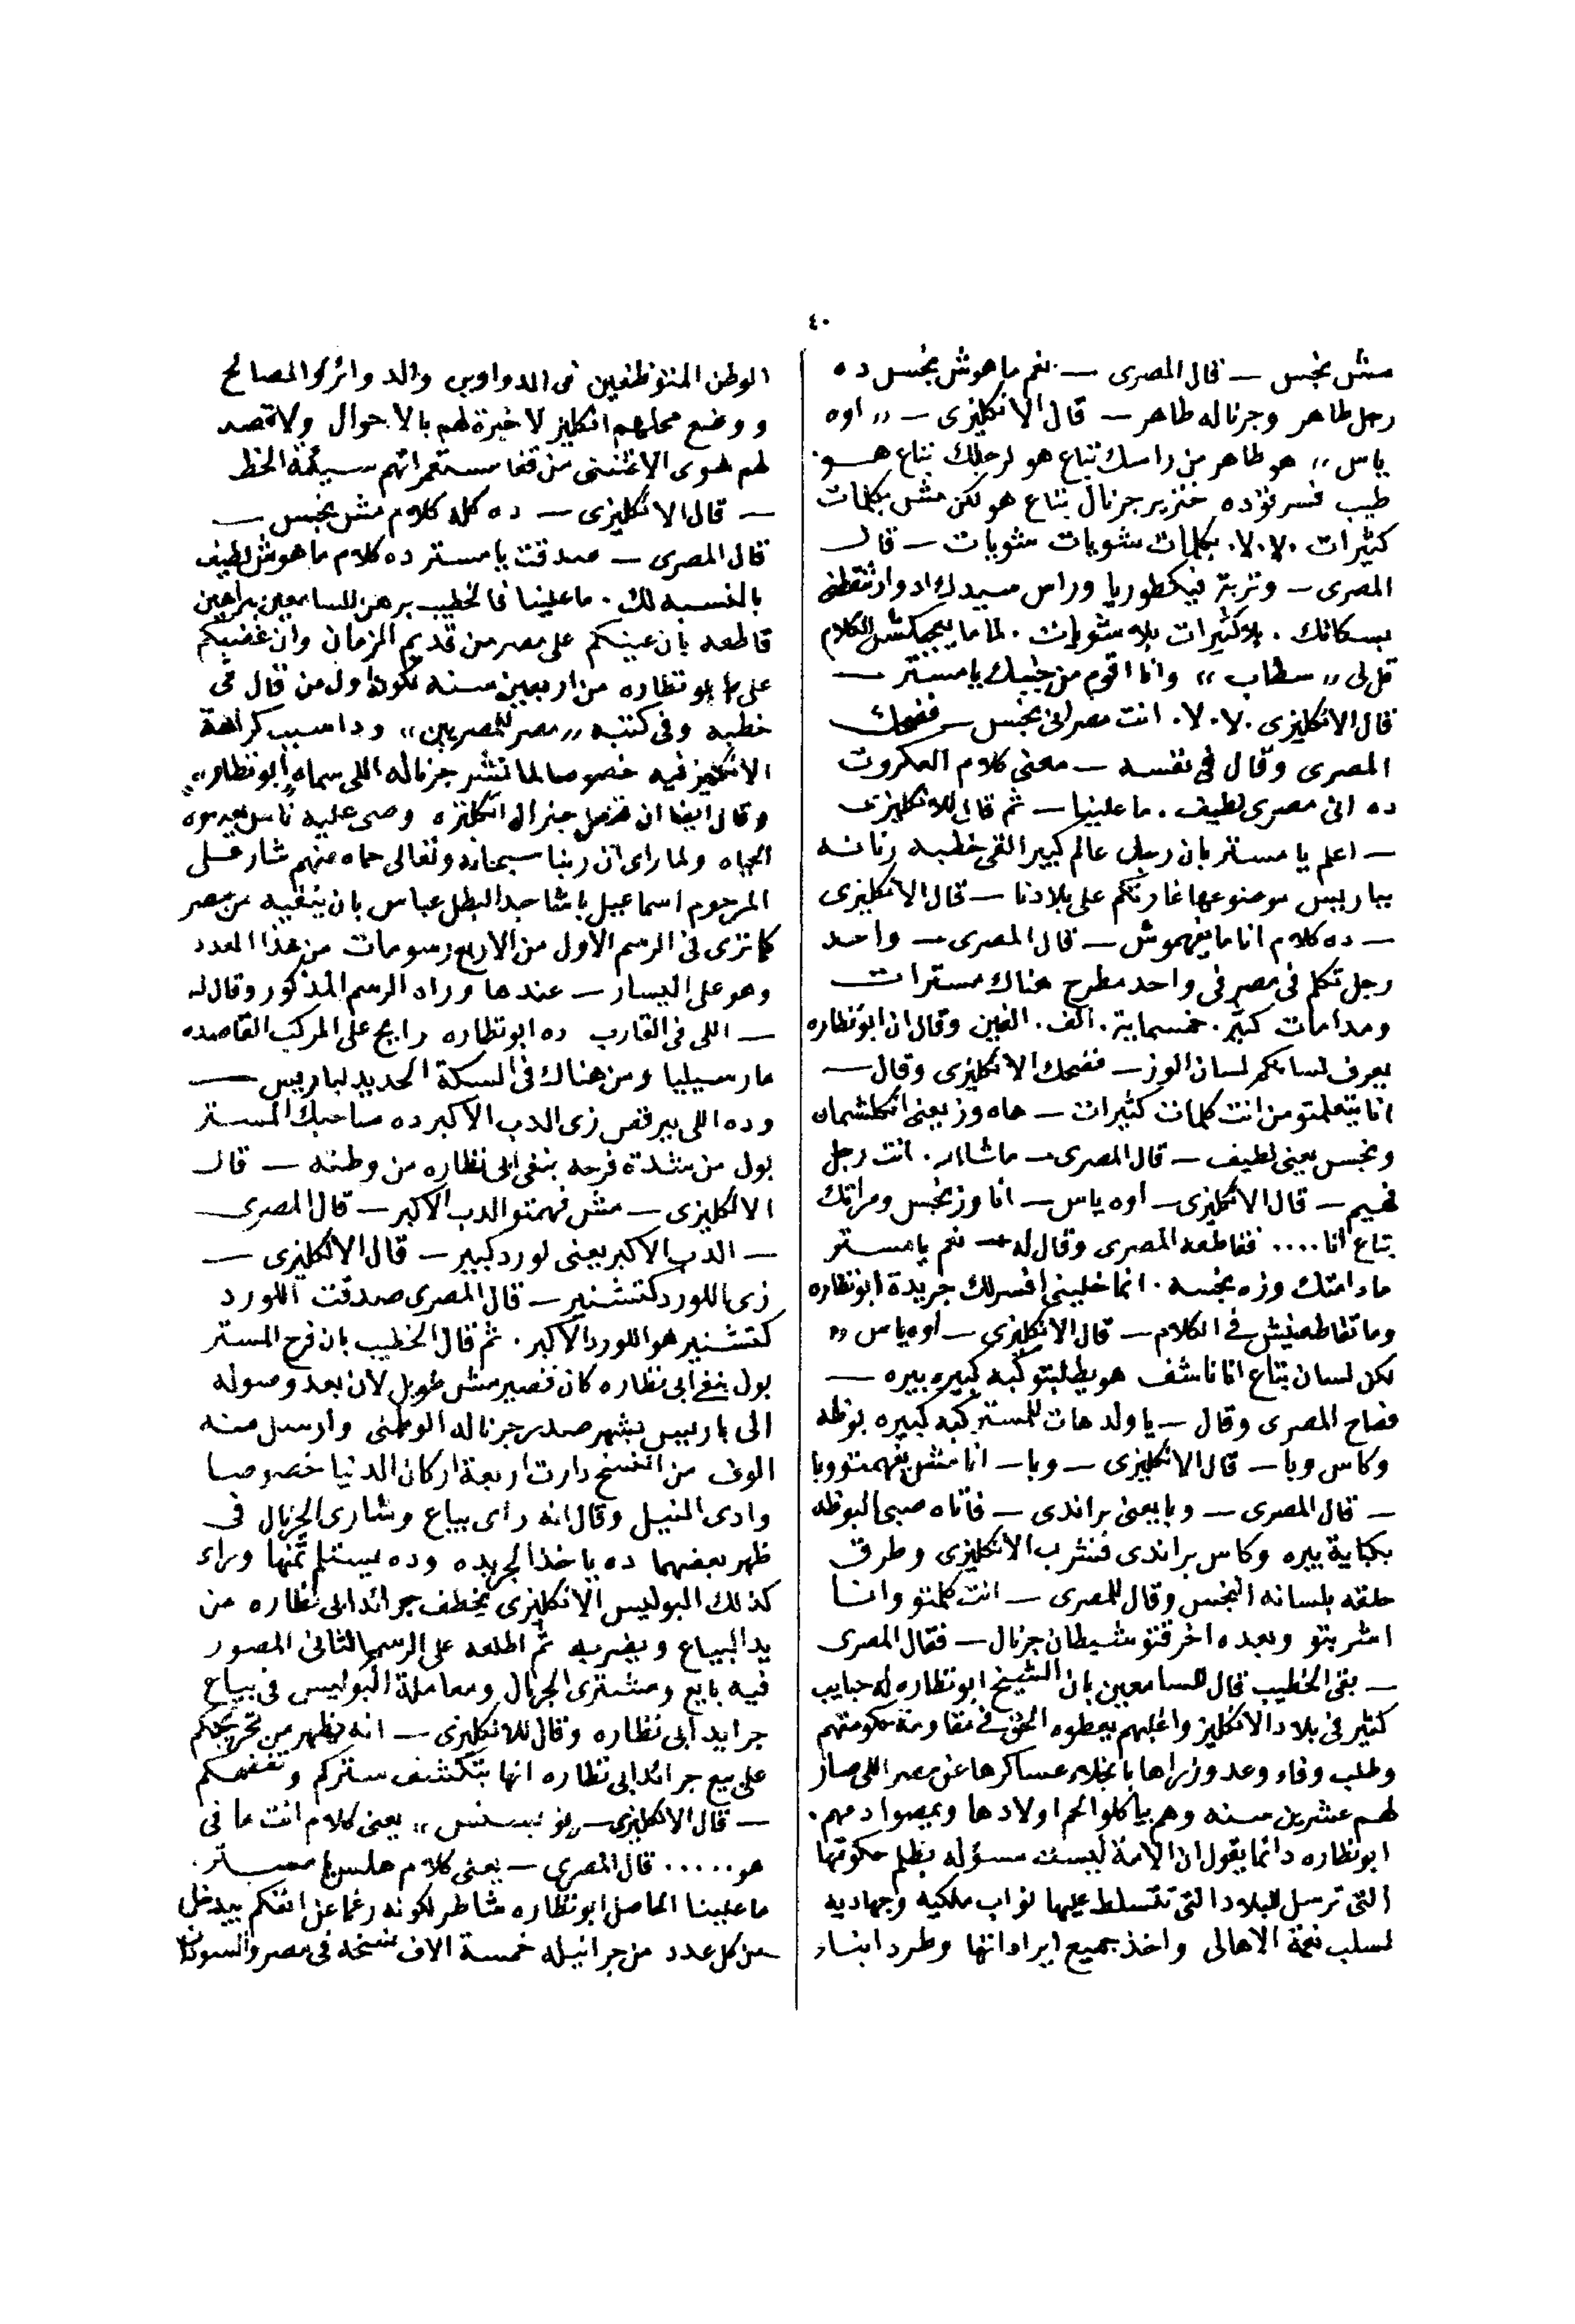 ٤٠
مش نجس — قال المصرى — نعم ماهوش نجس ده
رجل طاهر وجرناله طاهر — قال الانكليزى — ,, اوه
ياس ,, هو طاهر من راسك بتاع هو لرجلك بتاع هو.
طيب فسرتو ده خنزير جرنال بتاع هو لكن مش بكلمات
كثيرات .لا.لا. بكلمات شويات شويات — قال
المصرى — وتربة فيكطوريا وراس سيدك ادوارد
بسكاتك . بلا كثيرات بلا شويات . لما ما يعجبكش الكلام
قل لى ,, سطاب ,, وانا اقوم من جنبك يا مستر —
قال الانكليزى .لا.لا. انت مصرانى نجس — فضحك
المصرى وقال فى نفسه — معنى كلام العكروت
ده انى مصرى لطيف . ما علينا — ثم قال للانكليزى
— اعلم يا مستر بان رجل عالم كبير القى خطبه رنانه
بباريس موضوعها غارتكم على بلادنا — قال الانكليزى
— ده كلام انا ما يفهموش — قال المصرى — واحد
رجل تكلم فى مصر فى واحد مطرح هناك مسترات
ومدامات كتير . خمسماية . الف . الفين وقال ان ابو نظاره
يعرف لسانكم لسان الوز — فضحك الانكليزى وقال —
انا يتعلمتو من انت كلمات كثيرات — هاه وز يعنى انكلشمان
ونجس يعنى لطيف — قال المصرى — ماشاالله . انت رجل
فهيم — قال الانكليزى — اوه ياس — انا وز نجس ومراتك
بتاع انا .... فقاطعه المصرى وقال له — نعم يا مستر
مادامتك وزه نجسه . انما خلينى افسر لك جريدة ابو نظاره
وما تقاطعنيش فى الكلام — قال الانكليزى — اوه ياس ,,
لكن لسان بتاع انا ناشف هو يطلبتو كبه كبيره بيره —
فصاح المصرى وقال — يا ولد هات للمستر كبه كبيره بوظه
وكاس وبا — قال الانكليزى — وبا — انا مش يفهمتو وبا
— قال المصرى — وبا يعنى براندى — فأتاه صبى البوظه
بكباية بيره وكاس براندى فشرب الانكليزى وطرق
حلقه بلسانه النجس وقال للمصرى — انت كلمتو وانا
اشربتو وبعده اخرقتو شيطان جرنال — فقال المصرى
— بقى الخطيب قال للسامعين بان الشيخ ابو نظاره له حبايب
كتير فى بلاد الانكليز واغلبهم يعطوه الحق فى مقاومة حكومتهم
وطلب وفاء وعد وزراها بانجلاء عساكرها عن مصر اللى صار
لهم عشرين سنه وهم بياكلوا لحم اولادها وبمصوا دمهم .
ابو نظاره دائما يقول ان الامة ليست مسؤله بظلم حكومتها
التى ترسل للبلاد التى تتسلط عليها نواب ملكيه وجهاديه
لسلب نعمة الاهالى واخذ جميع ايراداتها وطرد ابناء
الوطن المتوظفين فى الدواوين والدوائر والمصالح
ووضع محلهم انكليز لا خبرة لهم بالاحوال ولا قصد
لهم سوى الاغتنى من قفا مستعمراتهم سيئة الحظ
— قال الانكليزى — ده كله كلام مش نجس —
قال المصرى — صدقت يا مستر ده كلام ماهوش لطيف
بالنسبه لك . ما علينا فالخطيب برهن للسامعين ببراهين
قاطعه بان عينيكم على مصر من قديم الزمان وان غضبكم
على ابو نظاره من اربعين سنه لكونه اول من قال فى
خطبه وفى كتبه ,, مصر للمصريين ,, ودا سبب كراهة
الانكليز فيه خصوصا لما نشر جرناله اللى سماه ,,ابو نظاره,,
وقال ايضا ان قنصل جنرال انكلتره وصى عليه ناس يعدموه
الحياه ولما راى ان ربنا سبحانه وتعالى حماه منهم شار على
المرحوم اسماعيل باشا جد البطل عباس بان ينفيه من مصر
كما ترى فى الرسم الاول من الاربع رسومات من هذا العدد
وهو على اليسار — عندها وراه الرسم المذكور وقال له
— اللى فى القارب ده ابو نظاره رايح على المركب القاصده
مارسيليا ومن هناك فى السكة الحديد لباريس —
وده اللى بيرقص زى الدب الاكبر ده صاحبك المستر
بول من شدة فرحه بنفى ابى نظاره من وطنه — قال
الانكليزى — مش فهمتو الدب الاكبر — قال المصرى
— الدب الاكبر يعنى لورد كبير — قال الانكليزى —
زى اللورد كتشنير — قال المصرى صدقت اللورد
كتشنير هو اللورد الاكبر . ثم قال الخطيب بان فرح المستر
بول بنفى ابى نظاره كان قصير مش طويل لان بعد وصوله
الى باريس بشهر صدر جرناله الوطنى وارسل منه
الوف من النسخ دارت اربعة اركان الدنيا خصوصا
وادى النيل وقال انه رأى بياع وشارى الجرنال فى
ظهر بعضهما ده ياخذ الجريده وده يستلم ثمنها وراء
كذلك البوليس الانكليزى يخطف جرائد ابى نظاره من
يد البياع ويضربه ثم اطلعه على الرسم الثانى المصور
فيه بايع ومشترى الجرنال ومعاملة البوليس فى بياع
جرايد ابى نظاره وقال للانكليزى — انه يظهر من تحريجكم
على بيع جرائد ابى نظاره انها بتكشف ستركم وتفضحكم
— قال الانكليزى — ,, يعنى كلام انت ما فى
هو ..... قال المصرى — يعنى كلام هلس يا مستر .
ما علينا الحاصل ابو نظاره شاطر لكونه رغما عن انفكم بيدخل
من كل عدد من جرانيله خمسة الاف نسخه فى مصر والسودان